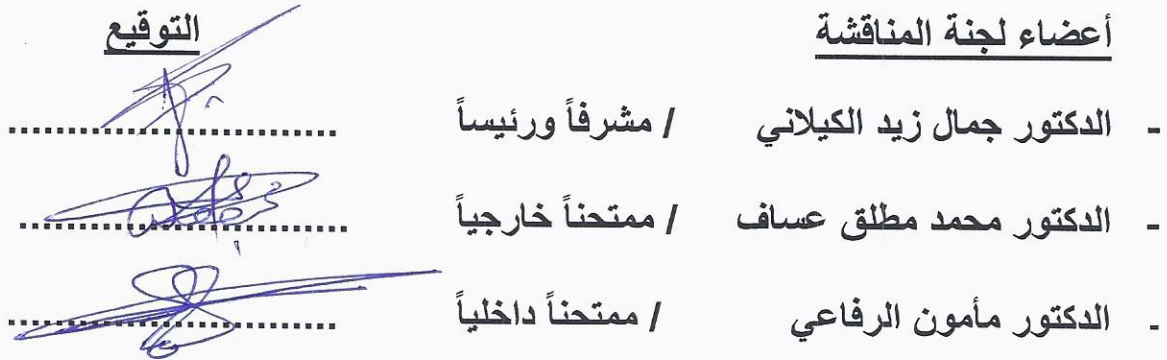 أعضاء لجنة المناقشة التوقيع
- الدكتور جمال زيد الكيلاني / مشرفاً ورئيساً ......................
- الدكتور محمد مطلق عساف / ممتحناً خارجياً ......................
- الدكتور مأمون الرفاعي / ممتحناً داخلياً ......................